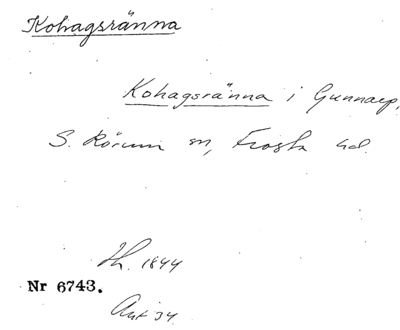 Kohagsränna
Kohagsränna i Gunnarp,
S. Rörum sn, Frosta hd.
Th. 1844
Nr 6743.
Ant 34